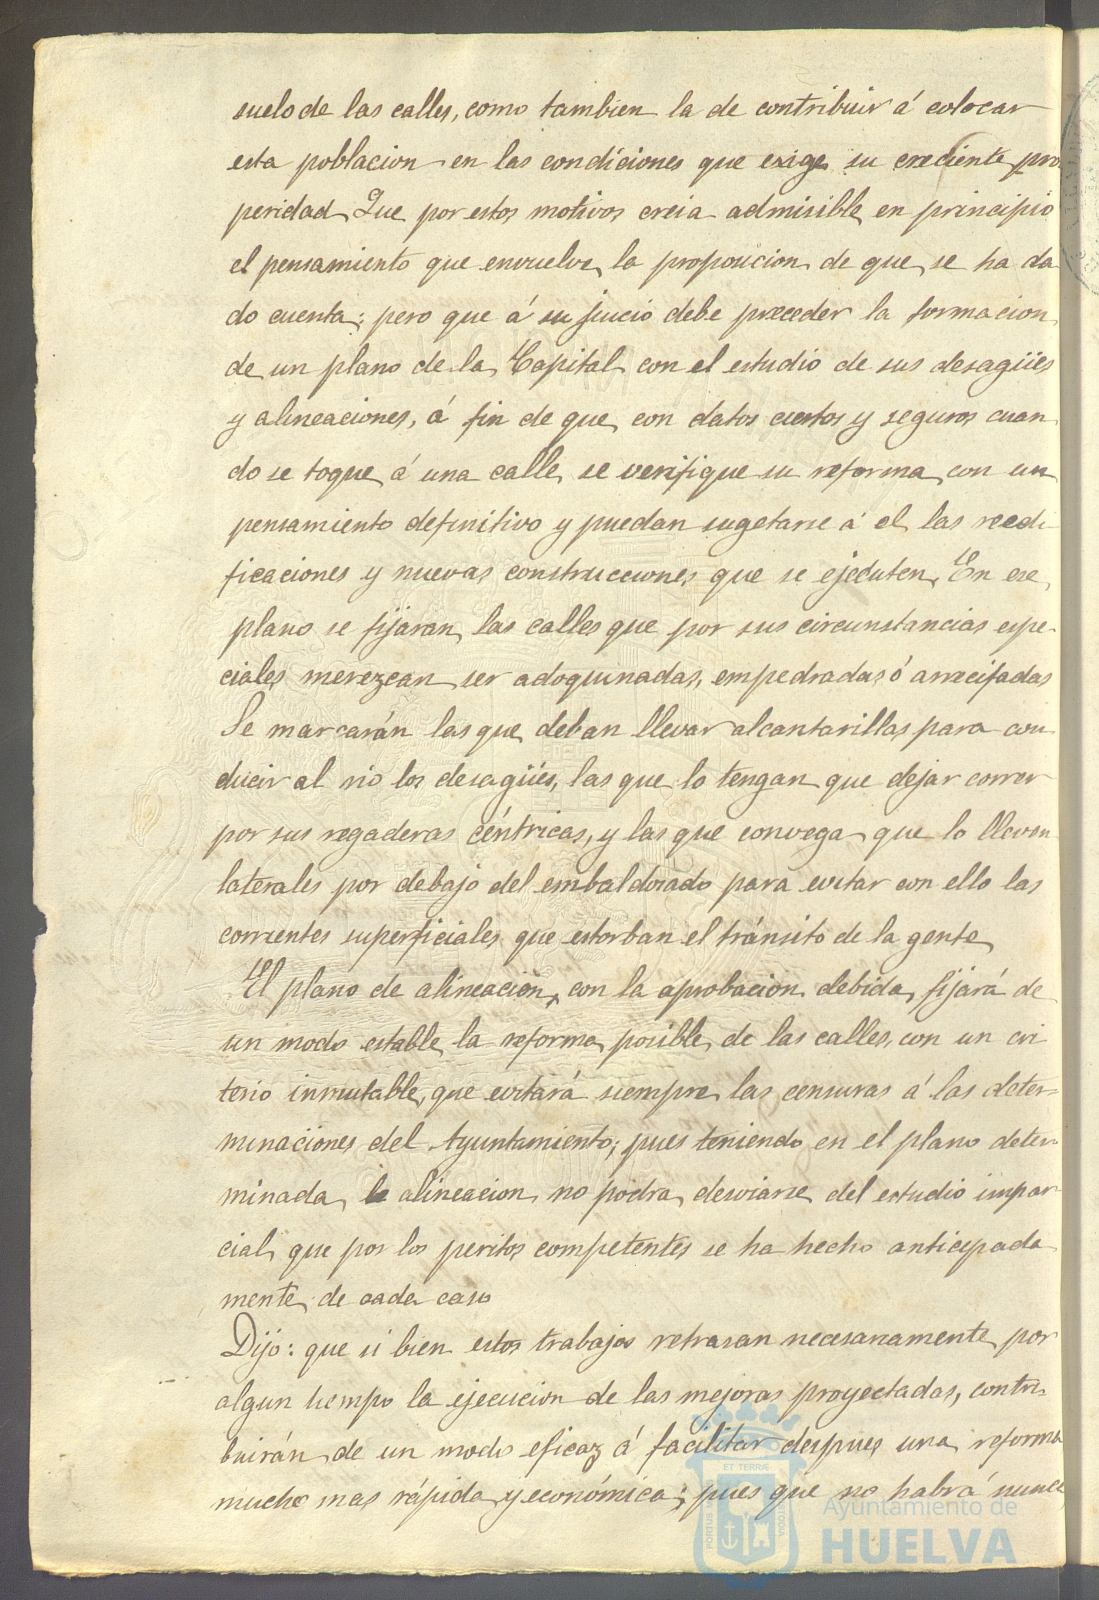 suelo de las calles, como tambien la de contribuir á colocar
esta poblacion en las condiciones que exige su creciente pros
peridad Que por estos motivos creia admisible en principio
el pensamiento que envuelve la proposicion de que se ha da
do cuenta; pero que á su juicio debe preceder la formacion
de un plano de la Capital con el estudio de sus desagües
y alineaciones, á fin de que con datos ciertos y seguros cuan
do se toque á una calle se verifique su reforma con un
pensamiento definitivo y puedan sugetarse á el las reedi
ficaciones y nuevas construcciones que se ejecuten, En ese
plano se fijarán las calles que por sus circunstancias espe-
ciales merezcan ser adoquinadas, empedradas ó arrecifadas
Se marcarán las que deban llevar alcantarillas para con
ducir al rio los desagües, las que lo tengan que dejar correr
por sus regaderas céntricas, y las que convega que lo lleven
laterales por debajo del embaldosado para evitar con ello las
corrientes superficiales que estorban el tránsito de la gente
El plano de alineacion, con la aprobacion debida, fijará de
un modo estable la reforma posible de las calles, con un cri
terio inmutable, que evitará siempre las censuras á las deter-
minaciones del Ayuntamiento; pues teniendo en el plano deter-
minada la alineacion no podra desviarse del estudio impar-
cial que por los peritos competentes se ha hecho anticipada
mente de cada caso
Dijo: que si bien estos trabajos retrasan necesariamente por
algun tiempo la ejecucion de las mejoras proyectadas, contri-
buirán de un modo eficaz á facilitar despues una reforma
mucho mas rápida y económica; pues que no habrá nunca
ET TERRÆ
PORTUS MARIS
CUSTODIA
Ayuntamiento de
HUELVA